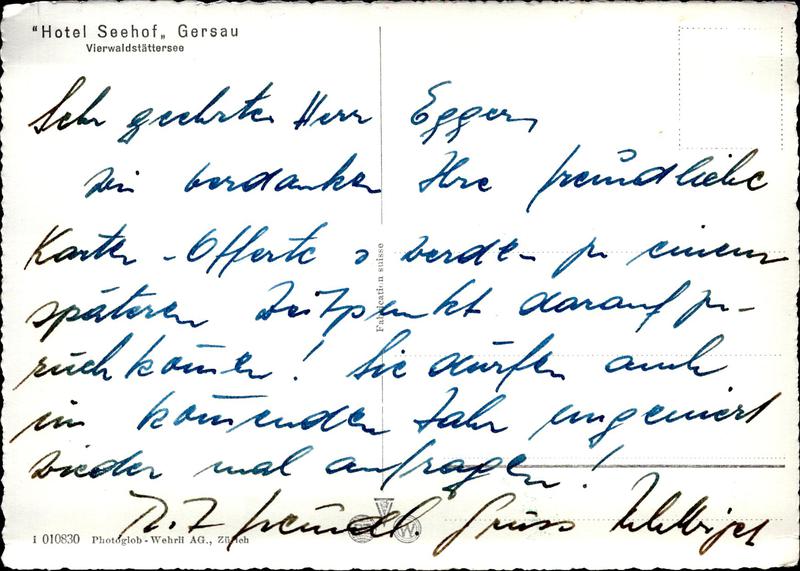 "Hotel Seehof„ Gersau
Vierwaldstättersee
Sehr geehrter Herr Egger,
wir verdanken Ihre freundliche
Karten-Offerte & werden zu einem
späteren Zeitpunkt darauf zu-
rückkom̄en! Sie dürfen auch
im kom̄enden Jahr ungeniert
wieder mal anfragen!
freundl. Gruss
Fabrication suisse
1 010830 Photoglob-Wehrli AG., Zürich